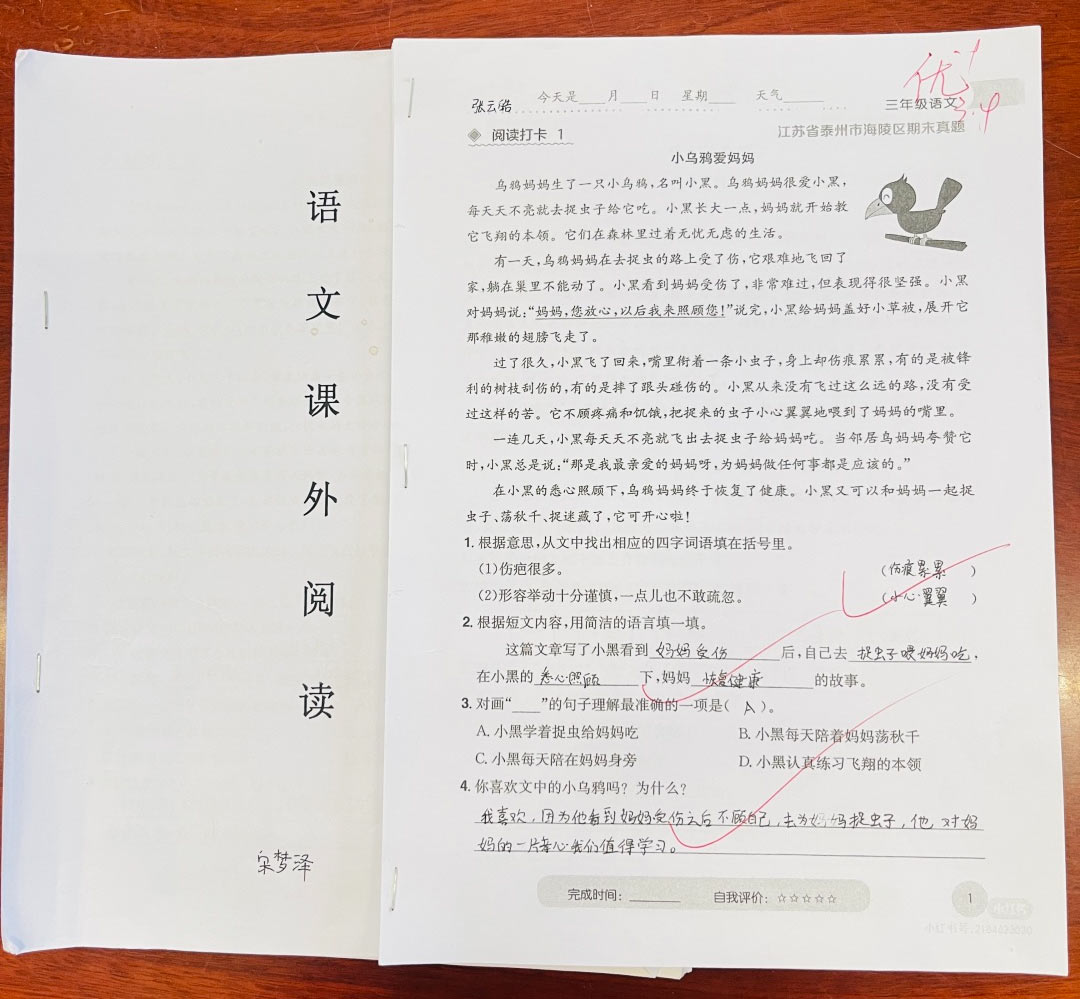 语
文
课
外
阅
读
宋梦泽
优+
3.4
张云皓 今天是____月____日 星期____ 天气______ 三年级语文
阅读打卡 1 江苏省泰州市海陵区期末真题
小乌鸦爱妈妈
乌鸦妈妈生了一只小乌鸦,名叫小黑。乌鸦妈妈很爱小黑,
每天天不亮就去捉虫子给它吃。小黑长大一点,妈妈就开始教
它飞翔的本领。它们在森林里过着无忧无虑的生活。
有一天,乌鸦妈妈在去捉虫的路上受了伤,它艰难地飞回了
家,躺在巢里不能动了。小黑看到妈妈受伤了,非常难过,但表现得很坚强。小黑
对妈妈说:“妈妈,您放心,以后我来照顾您!”说完,小黑给妈妈盖好小草被,展开它
那稚嫩的翅膀飞走了。
过了很久,小黑飞了回来,嘴里衔着一条小虫子,身上却伤痕累累,有的是被锋
利的树枝刮伤的,有的是摔了跟头碰伤的。小黑从来没有飞过这么远的路,没有受
过这样的苦。它不顾疼痛和饥饿,把捉来的虫子小心翼翼地喂到了妈妈的嘴里。
一连几天,小黑每天天不亮就飞出去捉虫子给妈妈吃。当邻居鸟妈妈夸赞它
时,小黑总是说:“那是我最亲爱的妈妈呀,为妈妈做任何事都是应该的。”
在小黑的悉心照顾下,乌鸦妈妈终于恢复了健康。小黑又可以和妈妈一起捉
虫子、荡秋千、捉迷藏了,它可开心啦!
1. 根据意思,从文中找出相应的四字词语填在括号里。
(1)伤疤很多。 (伤痕累累)
(2)形容举动十分谨慎,一点儿也不敢疏忽。 (小心翼翼)
2. 根据短文内容,用简洁的语言填一填。
这篇文章写了小黑看到 妈妈受伤 后,自己去 捉虫子喂妈妈吃,
在小黑的 悉心照顾 下,妈妈 恢复健康 的故事。
3. 对画“____”的句子理解最准确的一项是( A )。
A. 小黑学着捉虫给妈妈吃 B. 小黑每天陪着妈妈荡秋千
C. 小黑每天陪在妈妈身旁 D. 小黑认真练习飞翔的本领
4. 你喜欢文中的小乌鸦吗?为什么?
我喜欢,因为他看到妈妈受伤之后不顾自己,去为妈妈捉虫子,他对妈
妈的一片孝心我们值得学习。
完成时间:________ 自我评价:☆☆☆☆☆ 1
小红书